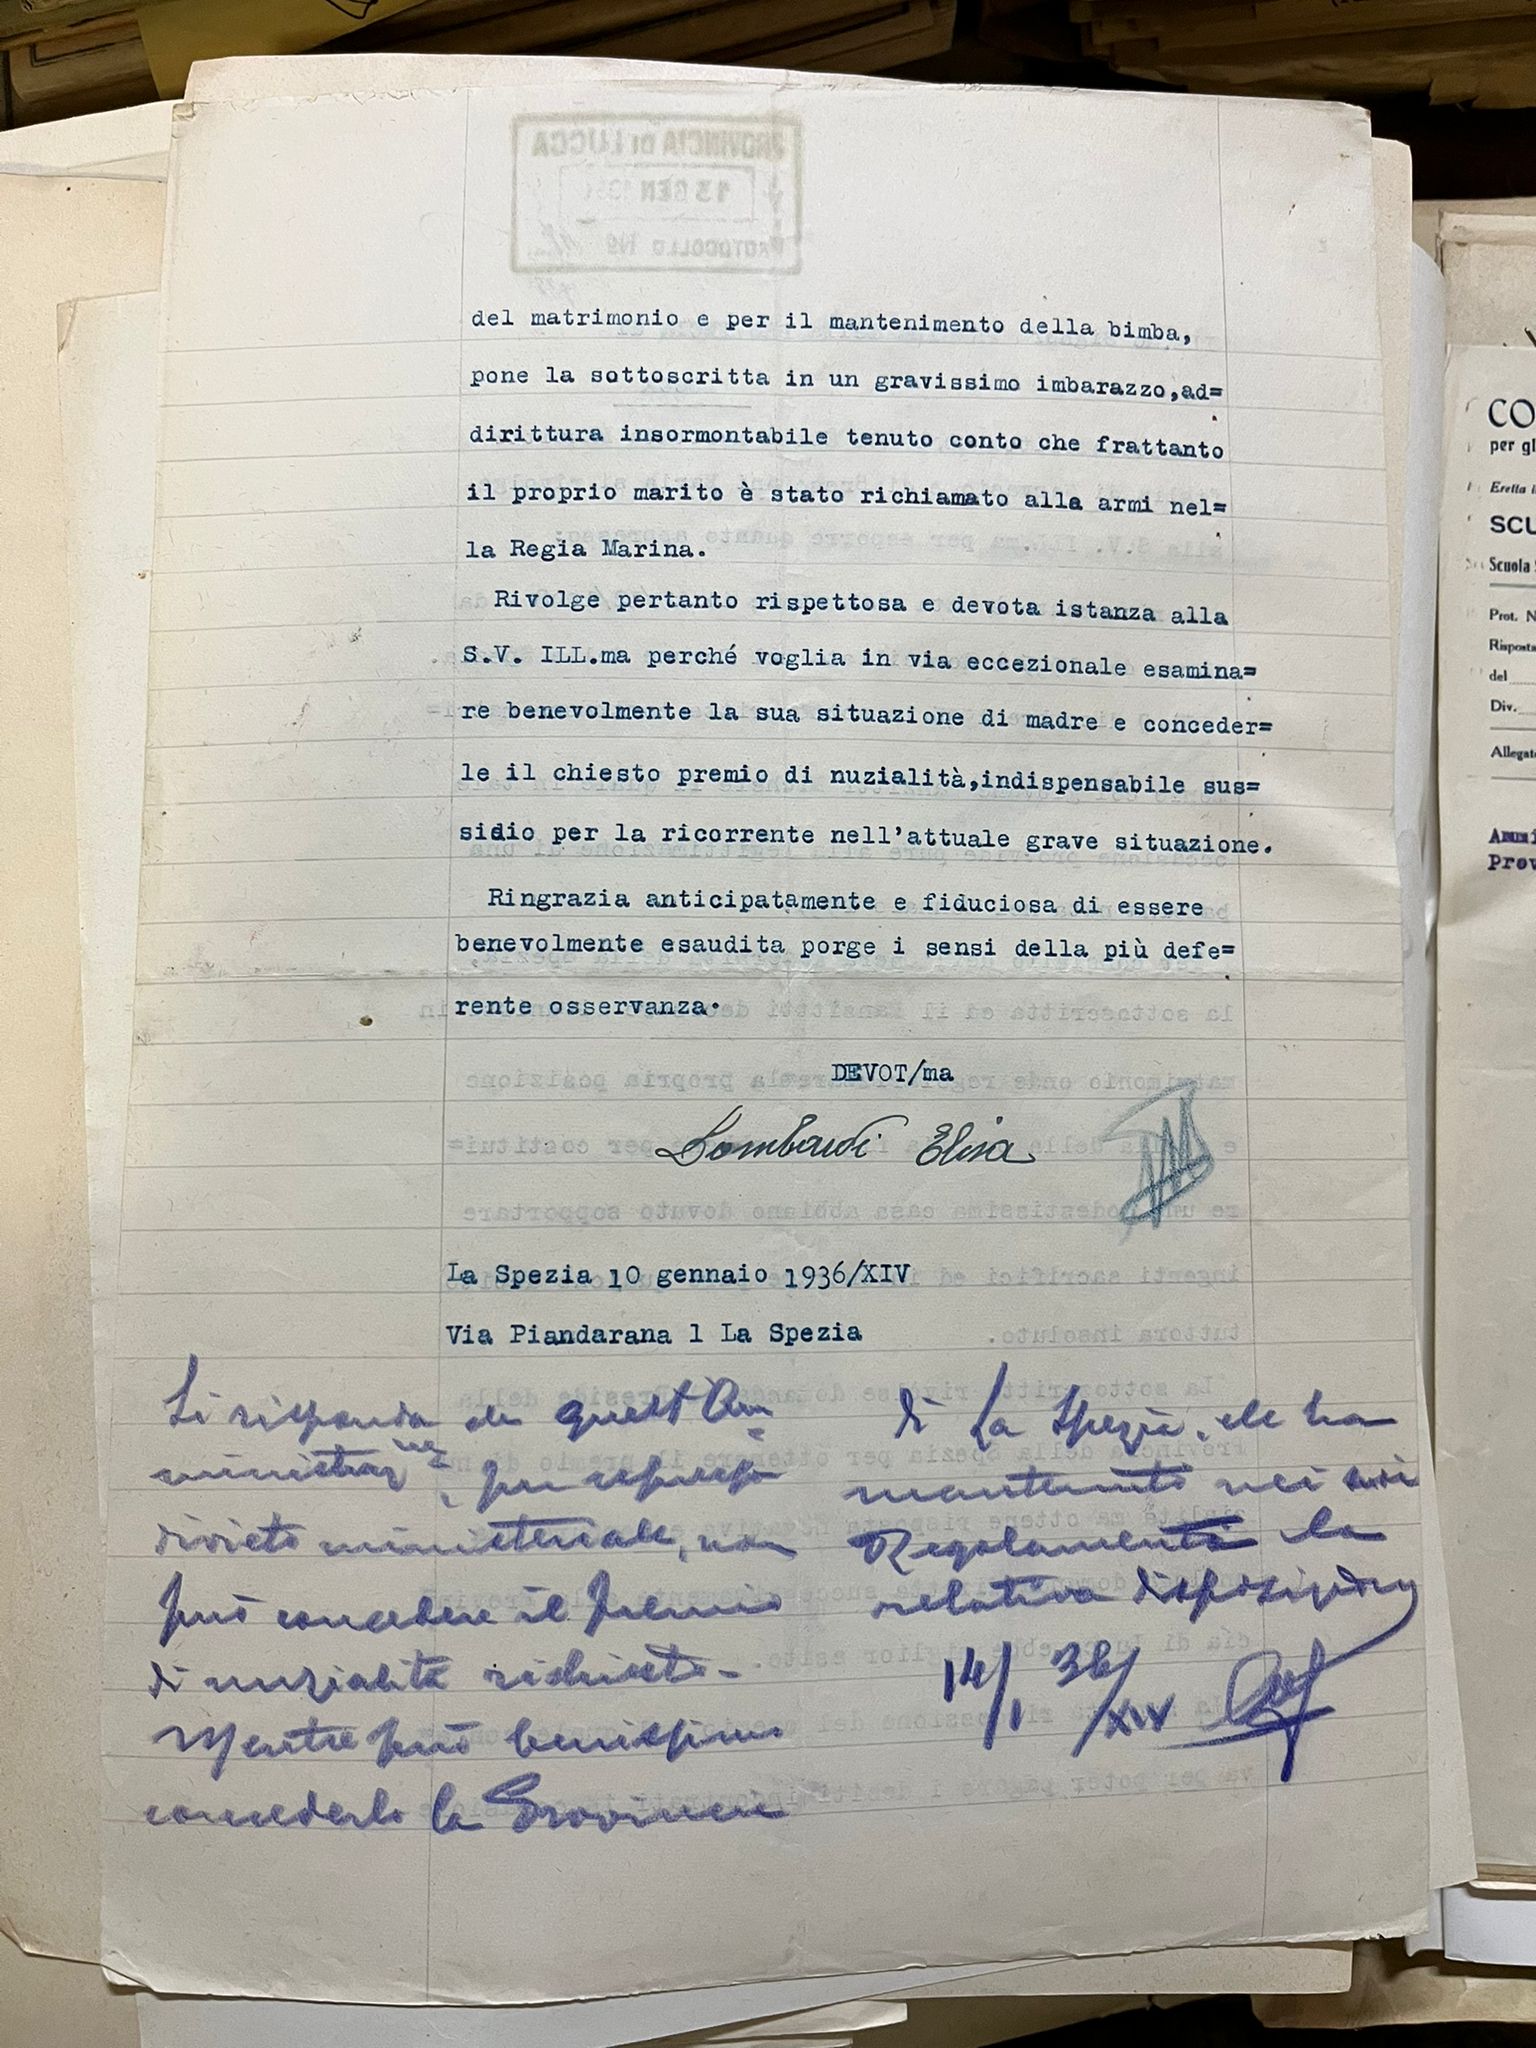 PROVINCIA DI LUCCA
13 GEN 193
PROTOCOLLO No
del matrimonio e per il mantenimento della bimba,
pone la sottoscritta in un gravissimo imbarazzo,ad=
dirittura insormontabile tenuto conto che frattanto
il proprio marito è stato richiamato alle armi nel=
la Regia Marina.
Rivolge pertanto rispettosa e devota istanza alla
S.V. ILL.ma perché voglia in via eccezionale esamina=
re benevolmente la sua situazione di madre e conceder=
le il chiesto premio di nuzialità,indispensabile sus=
sidio per la ricorrente nell'attuale grave situazione.
Ringrazia anticipatamente e fiduciosa di essere
benevolmente esaudita porge i sensi della più defe=
rente osservanza.
DEVOT/ma
Lombardi Elisa
La Spezia 10 gennaio 1936/XIV
Via Piandarana 1 La Spezia
Si risponda che quest'Am
ministraz ne per espresso
divieto ministeriale, non
può concedere il premio
di nuzialità richiesto.
Mentre può benissimo
concederlo la Provincia
di La Spezia, che ha
mantenuto nei suoi
Regolamenti la
relativa disposizione
14/1 36/XIV
CO
per gl
Eretta i
SCU
Scuola
Prot. N
Risposta
del
Div.
Allegat
Ammi
Prov